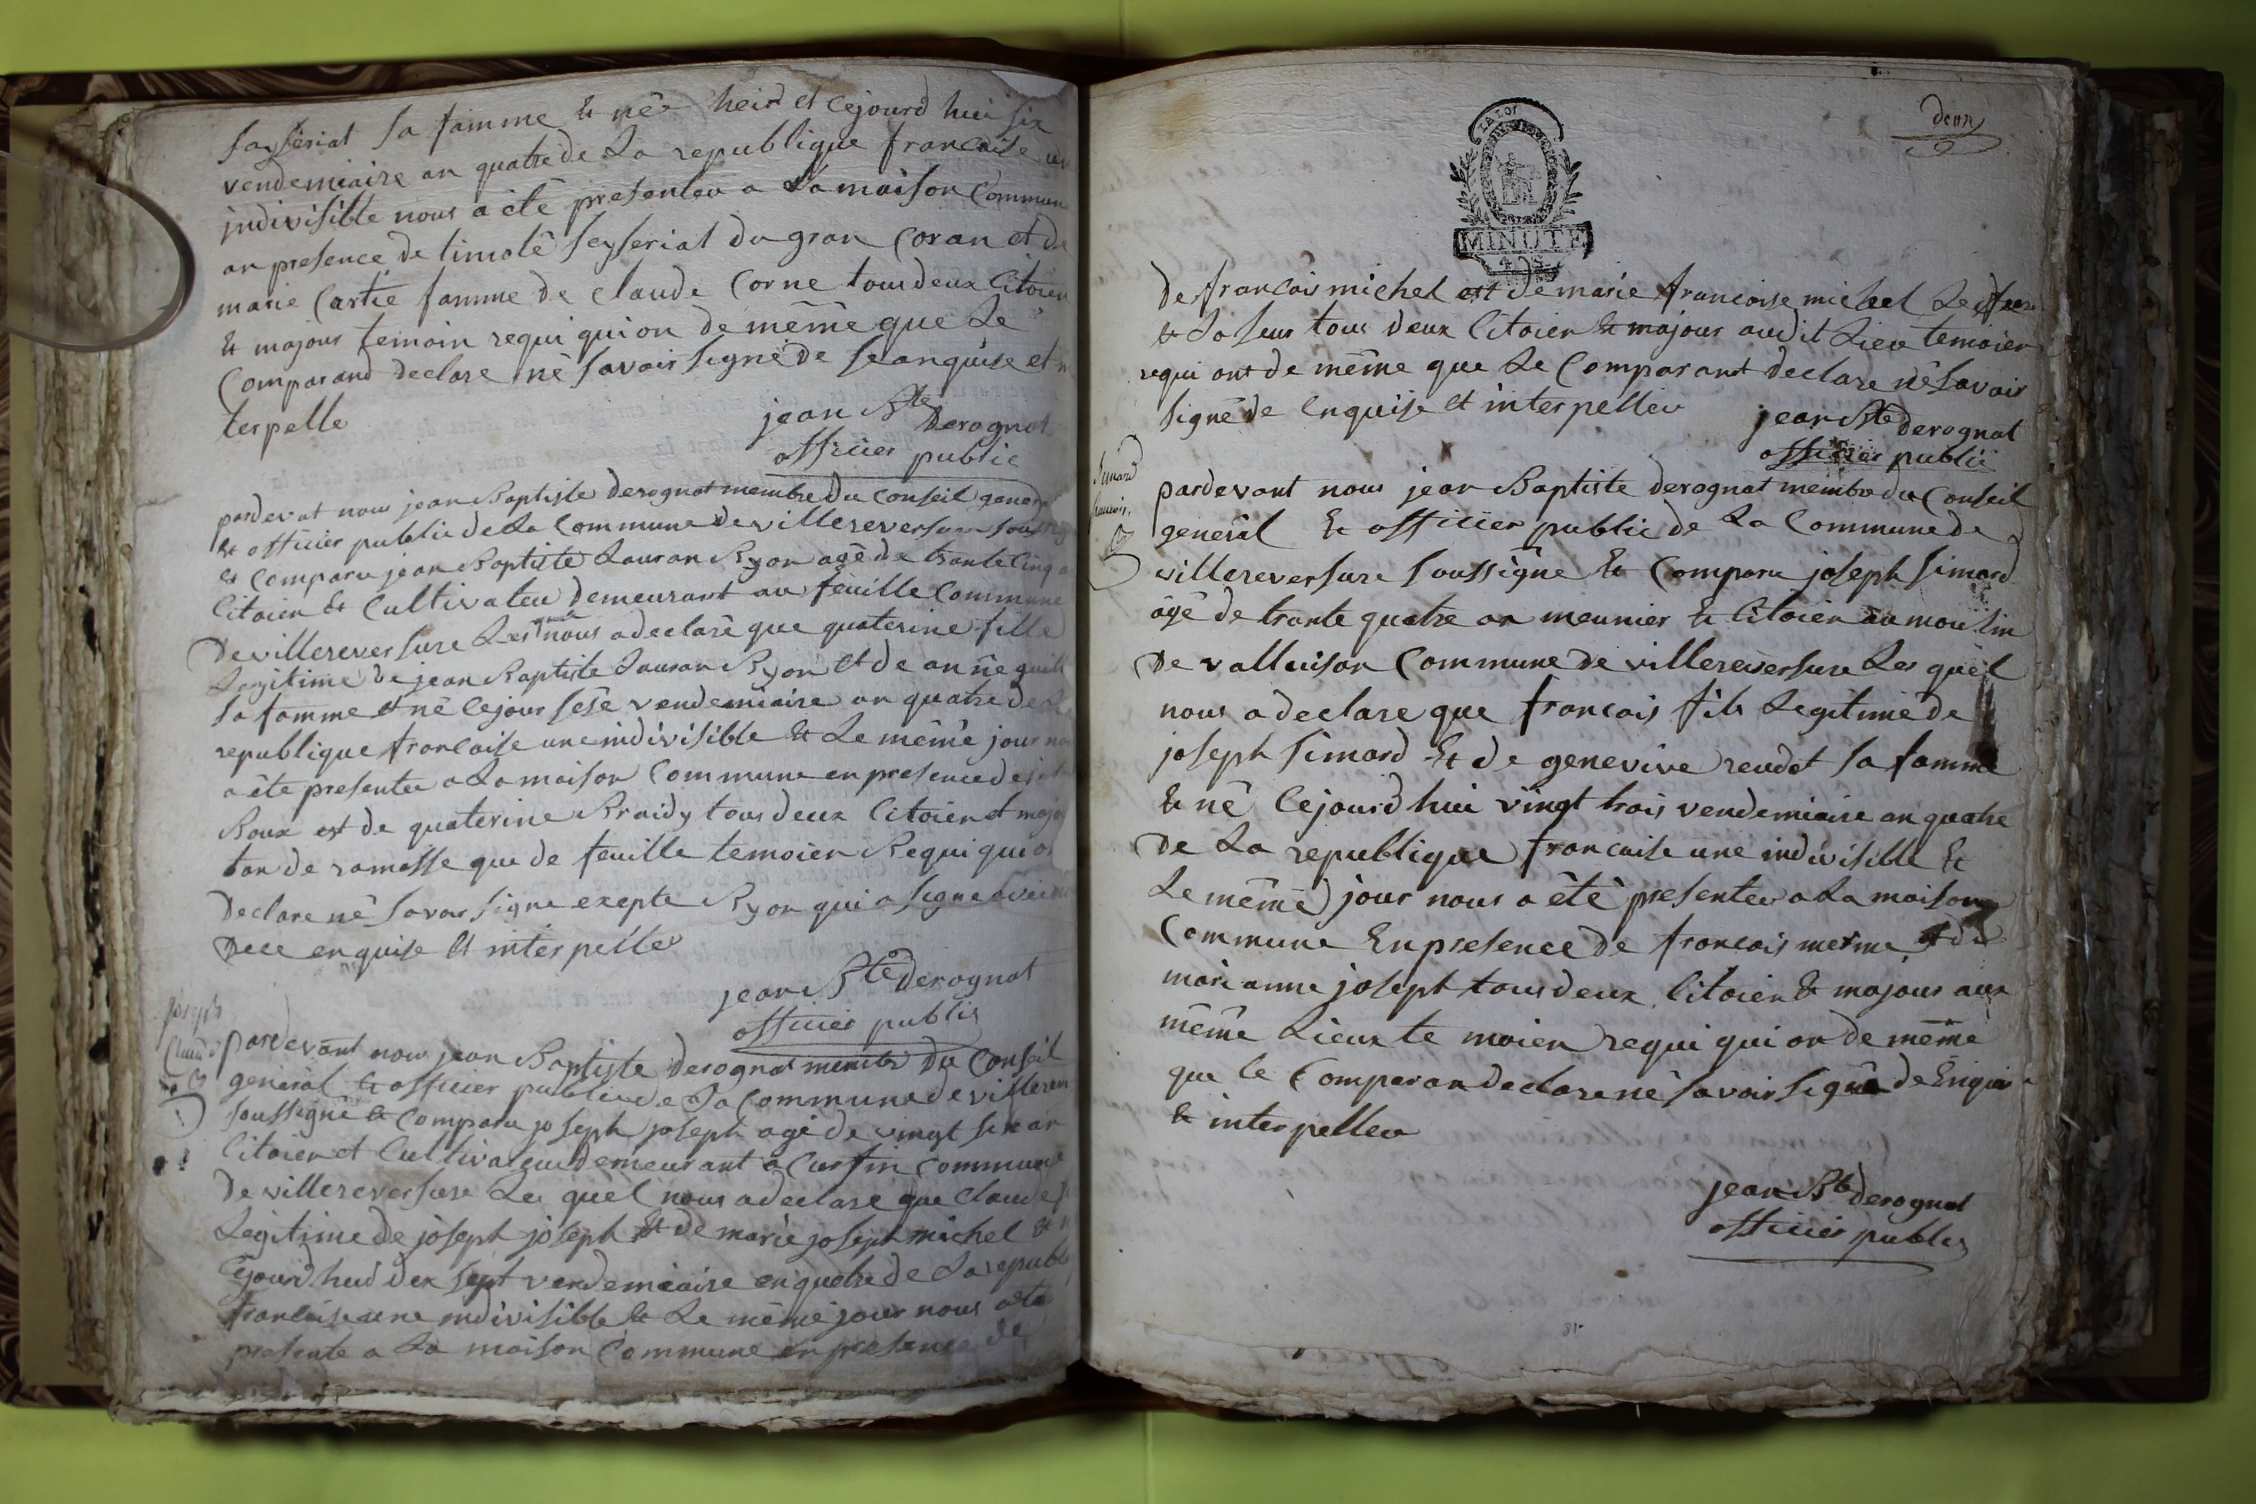 sa famme & né heir et cejourd hui six
vendemiaire an quatre de La republique francaise
indivisible nous a été presenteu a La maison Commun
an presence de timolé seyseriat du gran Coran et de
marie Cartié famme de claude Corne tous deux Citoien
& majour temoin requi qui on de même que Le
Comparand declare né savoir signé de se anquise et
terpelle
jean Bte Derognat
officier public
pardevat nous jean Baptiste derognat membre Du Conseil
& officier public de La Commune de villereversure
& Comparu jean Baptiste Lauran Ryon agé de trante cinq
Citoien & Cultivateu Demeurant au feuille Commune
De villereversure nous a declaré que quaterine fille
Legitime de jean Baptiste Lauran Ryon et de anne
sa famme et né Cejour sesê vendemiaire an quatre de
republique francaise une indivisible & Le même jour
a éte presenteu a La maison Commune en presence de
Roux est de quaterine Braidy tous deux Citoien et
tan de ramasse que de feuille temoien Requi qui
Declare né savoir signe exepte Ryon qui a signe
Dece enquise et interpelle
jean Bte derognat
officier public
joseph
Claude
pardevant nous jean Baptiste derognat membre Du Conseil
general & officier public de La Commune de
soussigné & Comparu joseph joseph agé de vingt six an
Citoien et Cultivateu demeurant a Cursin Commune
De villereversure Le quel nous a declaré que claude
Legitime de joseph joseph & de marie joseph michel &
Cejourd hui dix sept vendemiaire en quatre de La
francaise une indivisible & Le même jour nous
presente a La maison Commune en presence de
deux
LA LOI
MINUTE
4 S.
De francois michel est de marie francoise michel Le
& Sa seur tous deux Citoien & majour audit Lieu temoien
requi ont de même que Le Comparant declare né savoir
signé de Enquise et interpelleu
jean Bte derognat
officier public
simard
francois
pardevant nous jean Baptiste derognat membre du Conseil
general & officier public de La Commune de
villereversure soussigné & Comparu joseph simard
agé de trante quatre an meunier & Citoien au moulin
De valluisan Commune de villereversure Les quel
nous a declare que francois fils Legitime de
joseph simard & de genevive reudet sa famme
& né Cejourd hui vingt trois vendemiaire an quatre
De La republique francaise une indivisible &
Le même jour nous a été presenteu a La maison
Commune En presence De francois merme
marianne joseph tous deux Citoien & majour aux
même Lieux te moien requi qui on de même
que le Comparan declare né savoir signé de
& interpelleu
jean Bte derognat
officier public